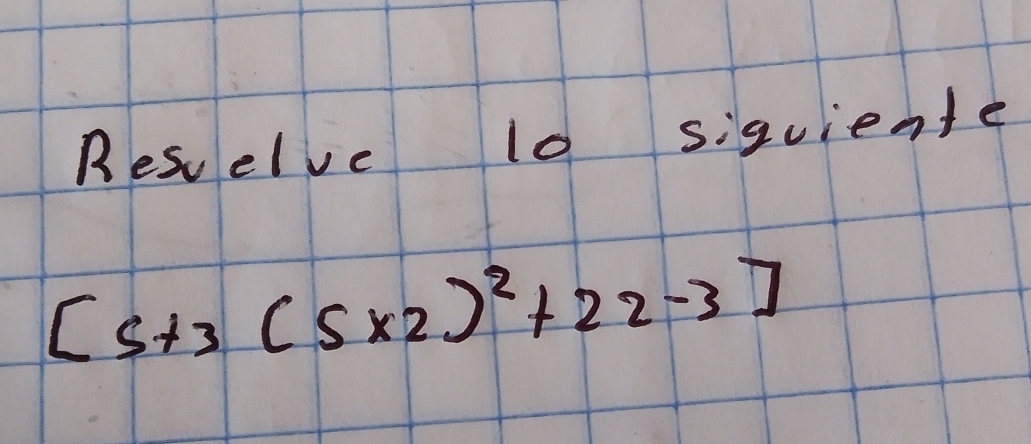 Resuelve lo siguiente
[5+3 (5x2)²+22-3]